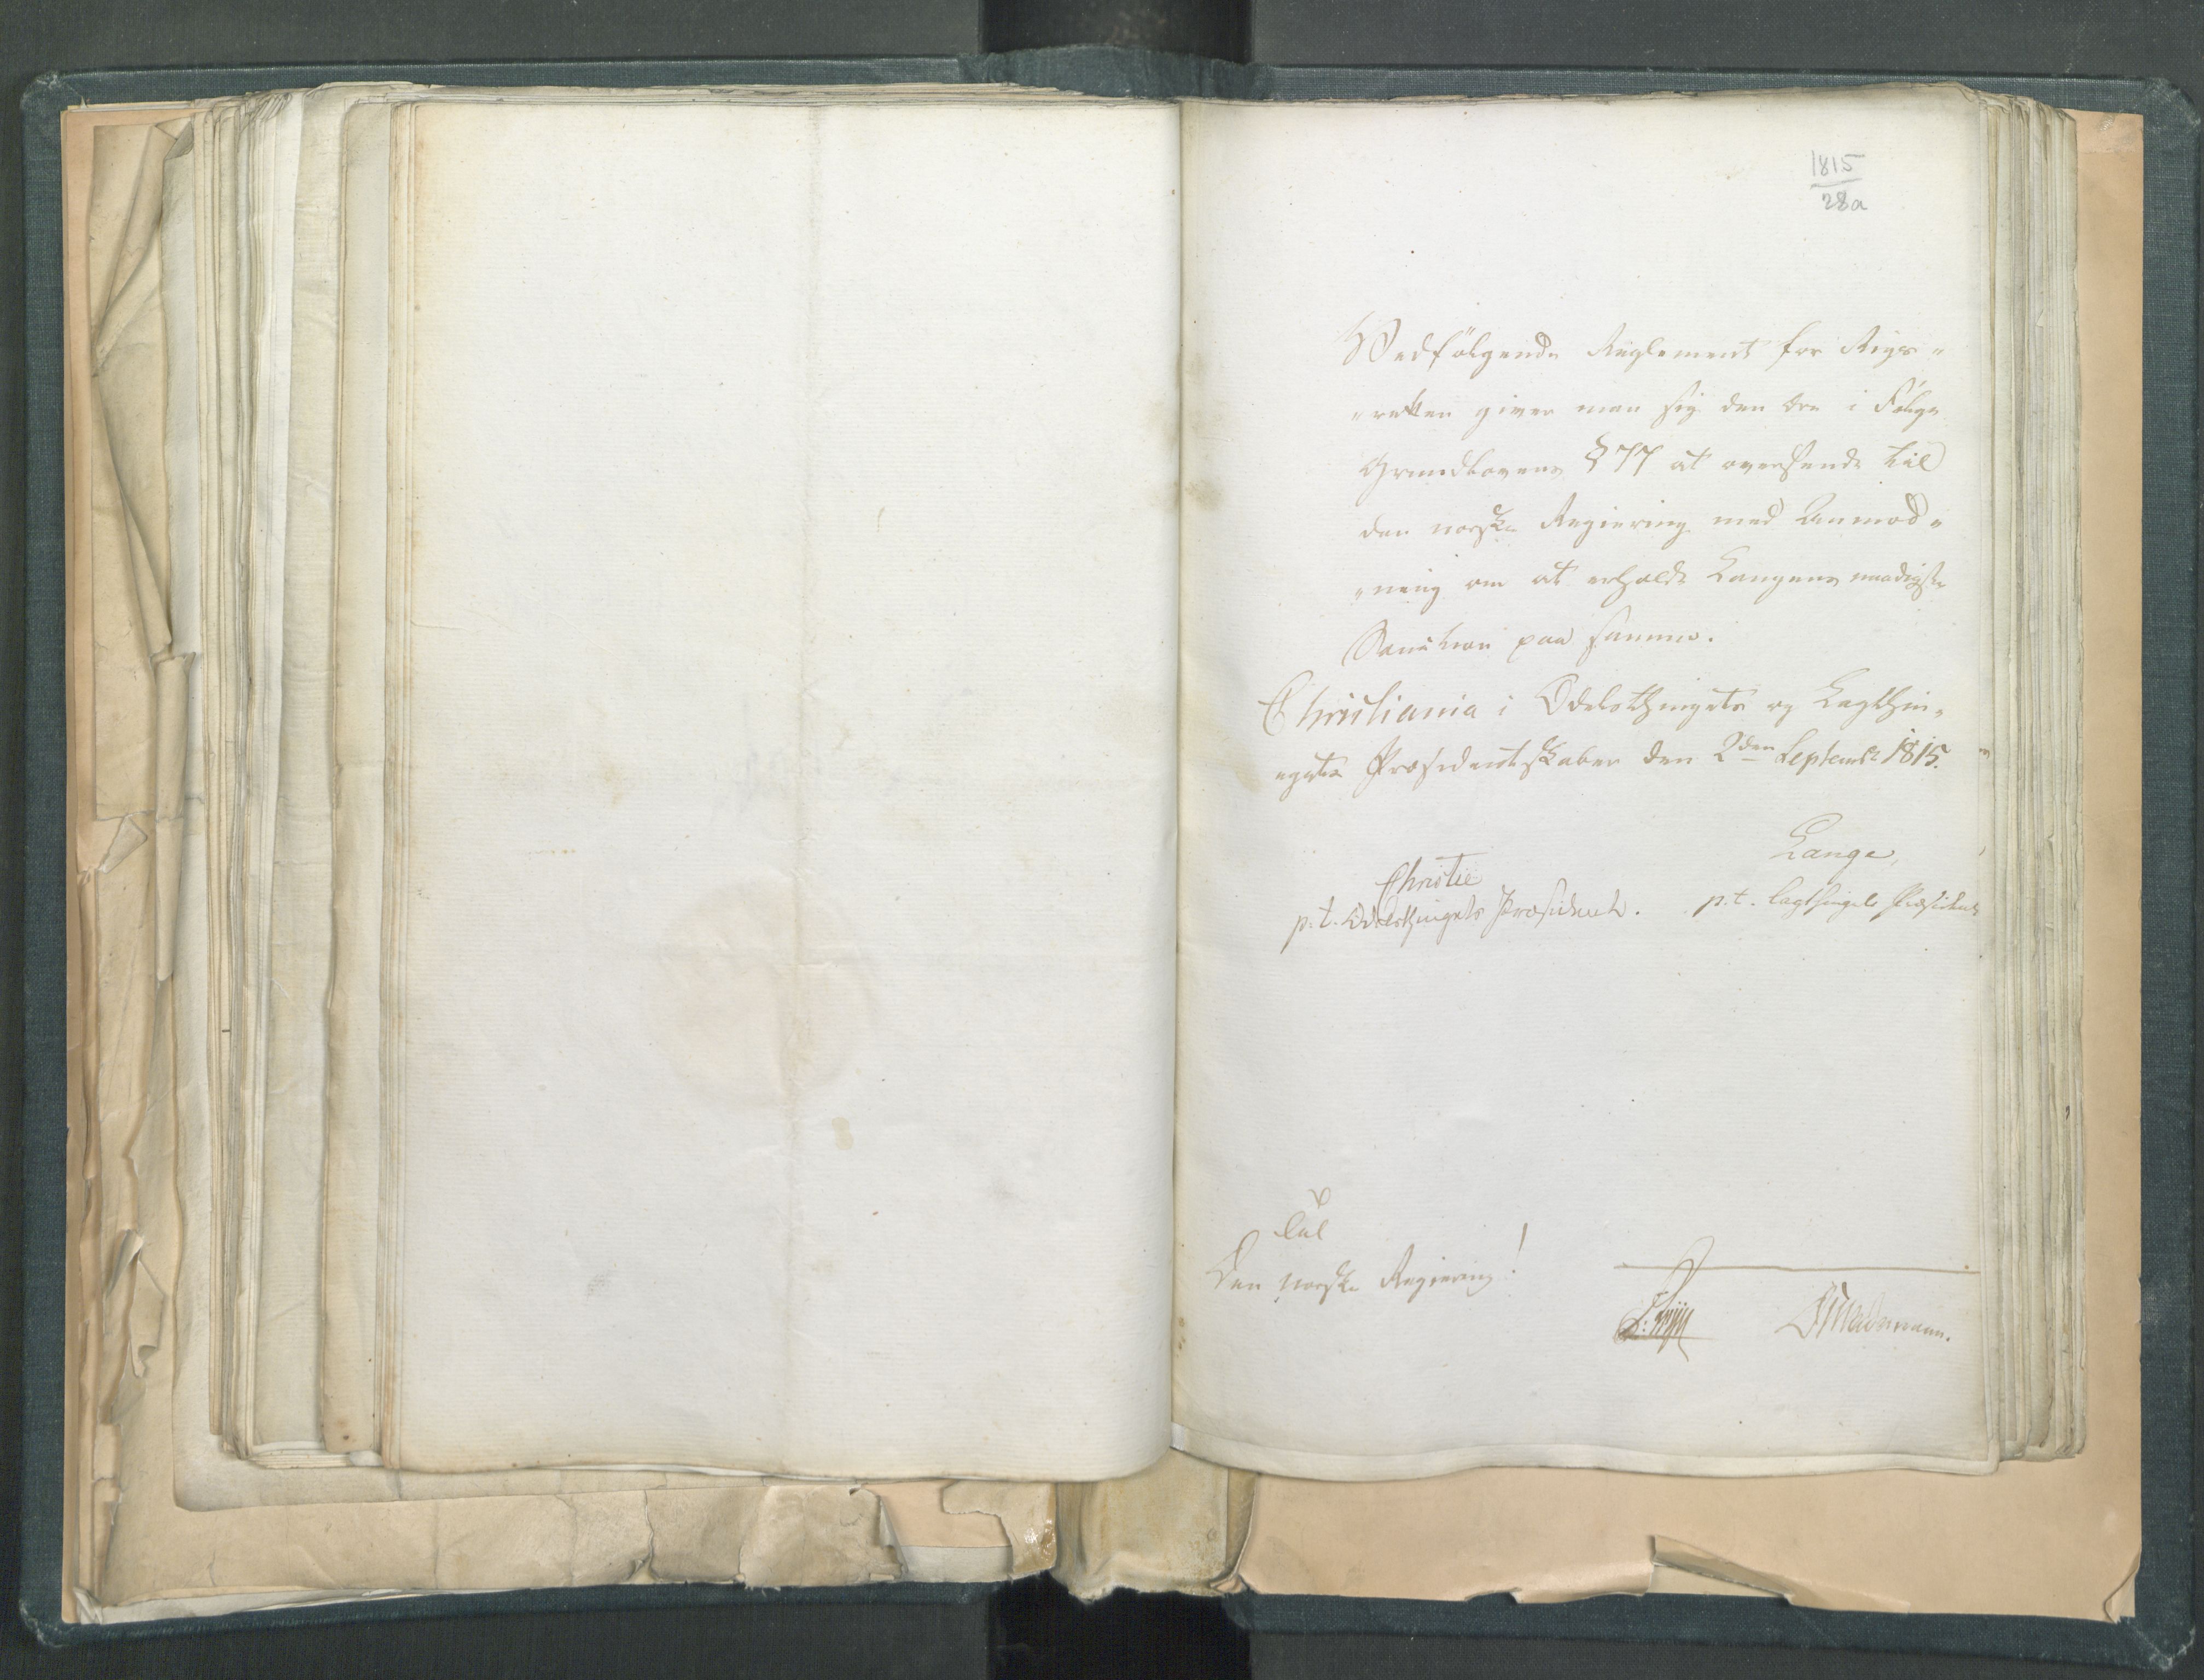 1815
28a
Vedfölgende Reglement for Rigs„
„retten giver man sig den Ære i Fölge
Grundlovens § 77 at oversende til
den norske Regiering med Anmod„
„ning om at erholde Kongens naadigste
Sanction paa samme.
Christiania i Odelsthingets og Lagthin„
„gets Præsidentskaber den 2den Septembr 1815.
Christie
p. t. Odelsthingets Præsident.
Lange
p. t. Lagthingets Præsident
Til
Den norske Regiering!